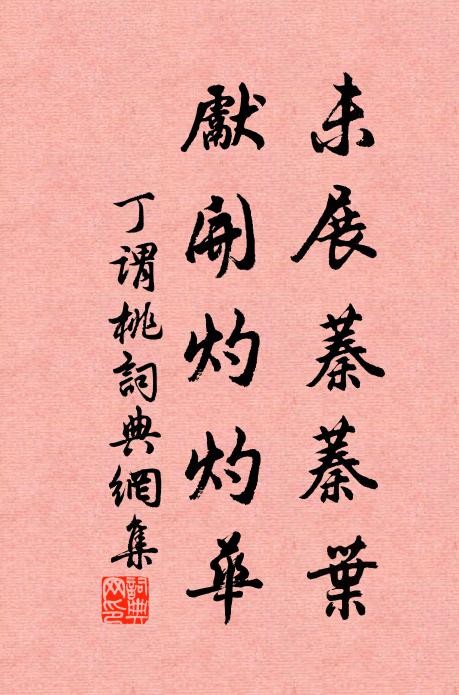 未展蓁蓁葉
獻開灼灼華
丁謂桃詞典網集
詞典網印